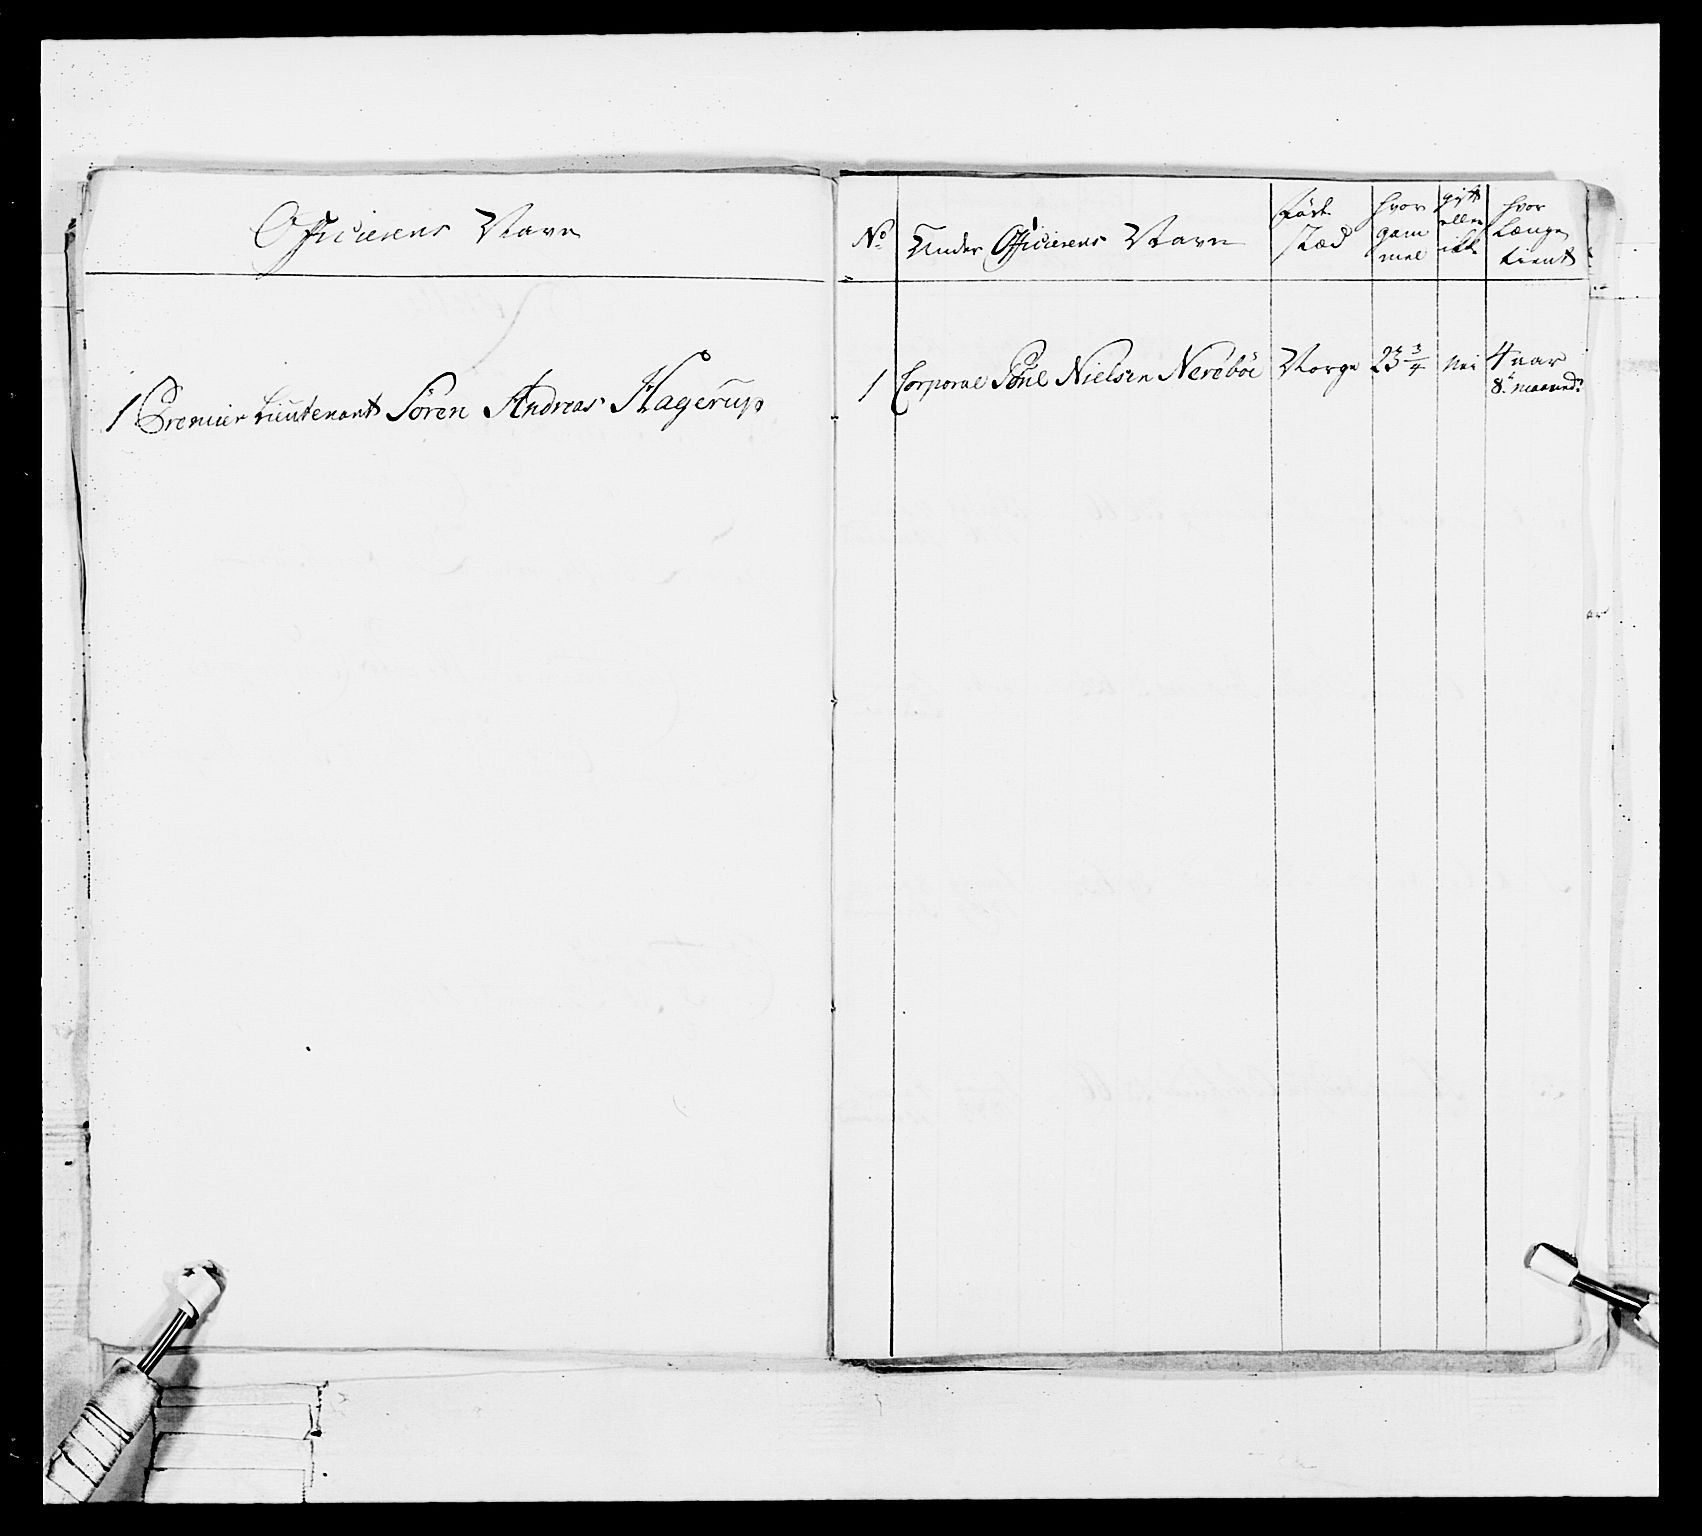 Officierens Navn
1 Premier Lieutenant Sören Andreas Hagerup
No
Under Officierens Navn
Föde
stæd
hvor
gam
mel
gift
eller
ikke
hvor
Længe
tient
1 Corporal Poul Nielsen Neröböe Norge 23 3/4 Nei 4 aar
8. maaned: